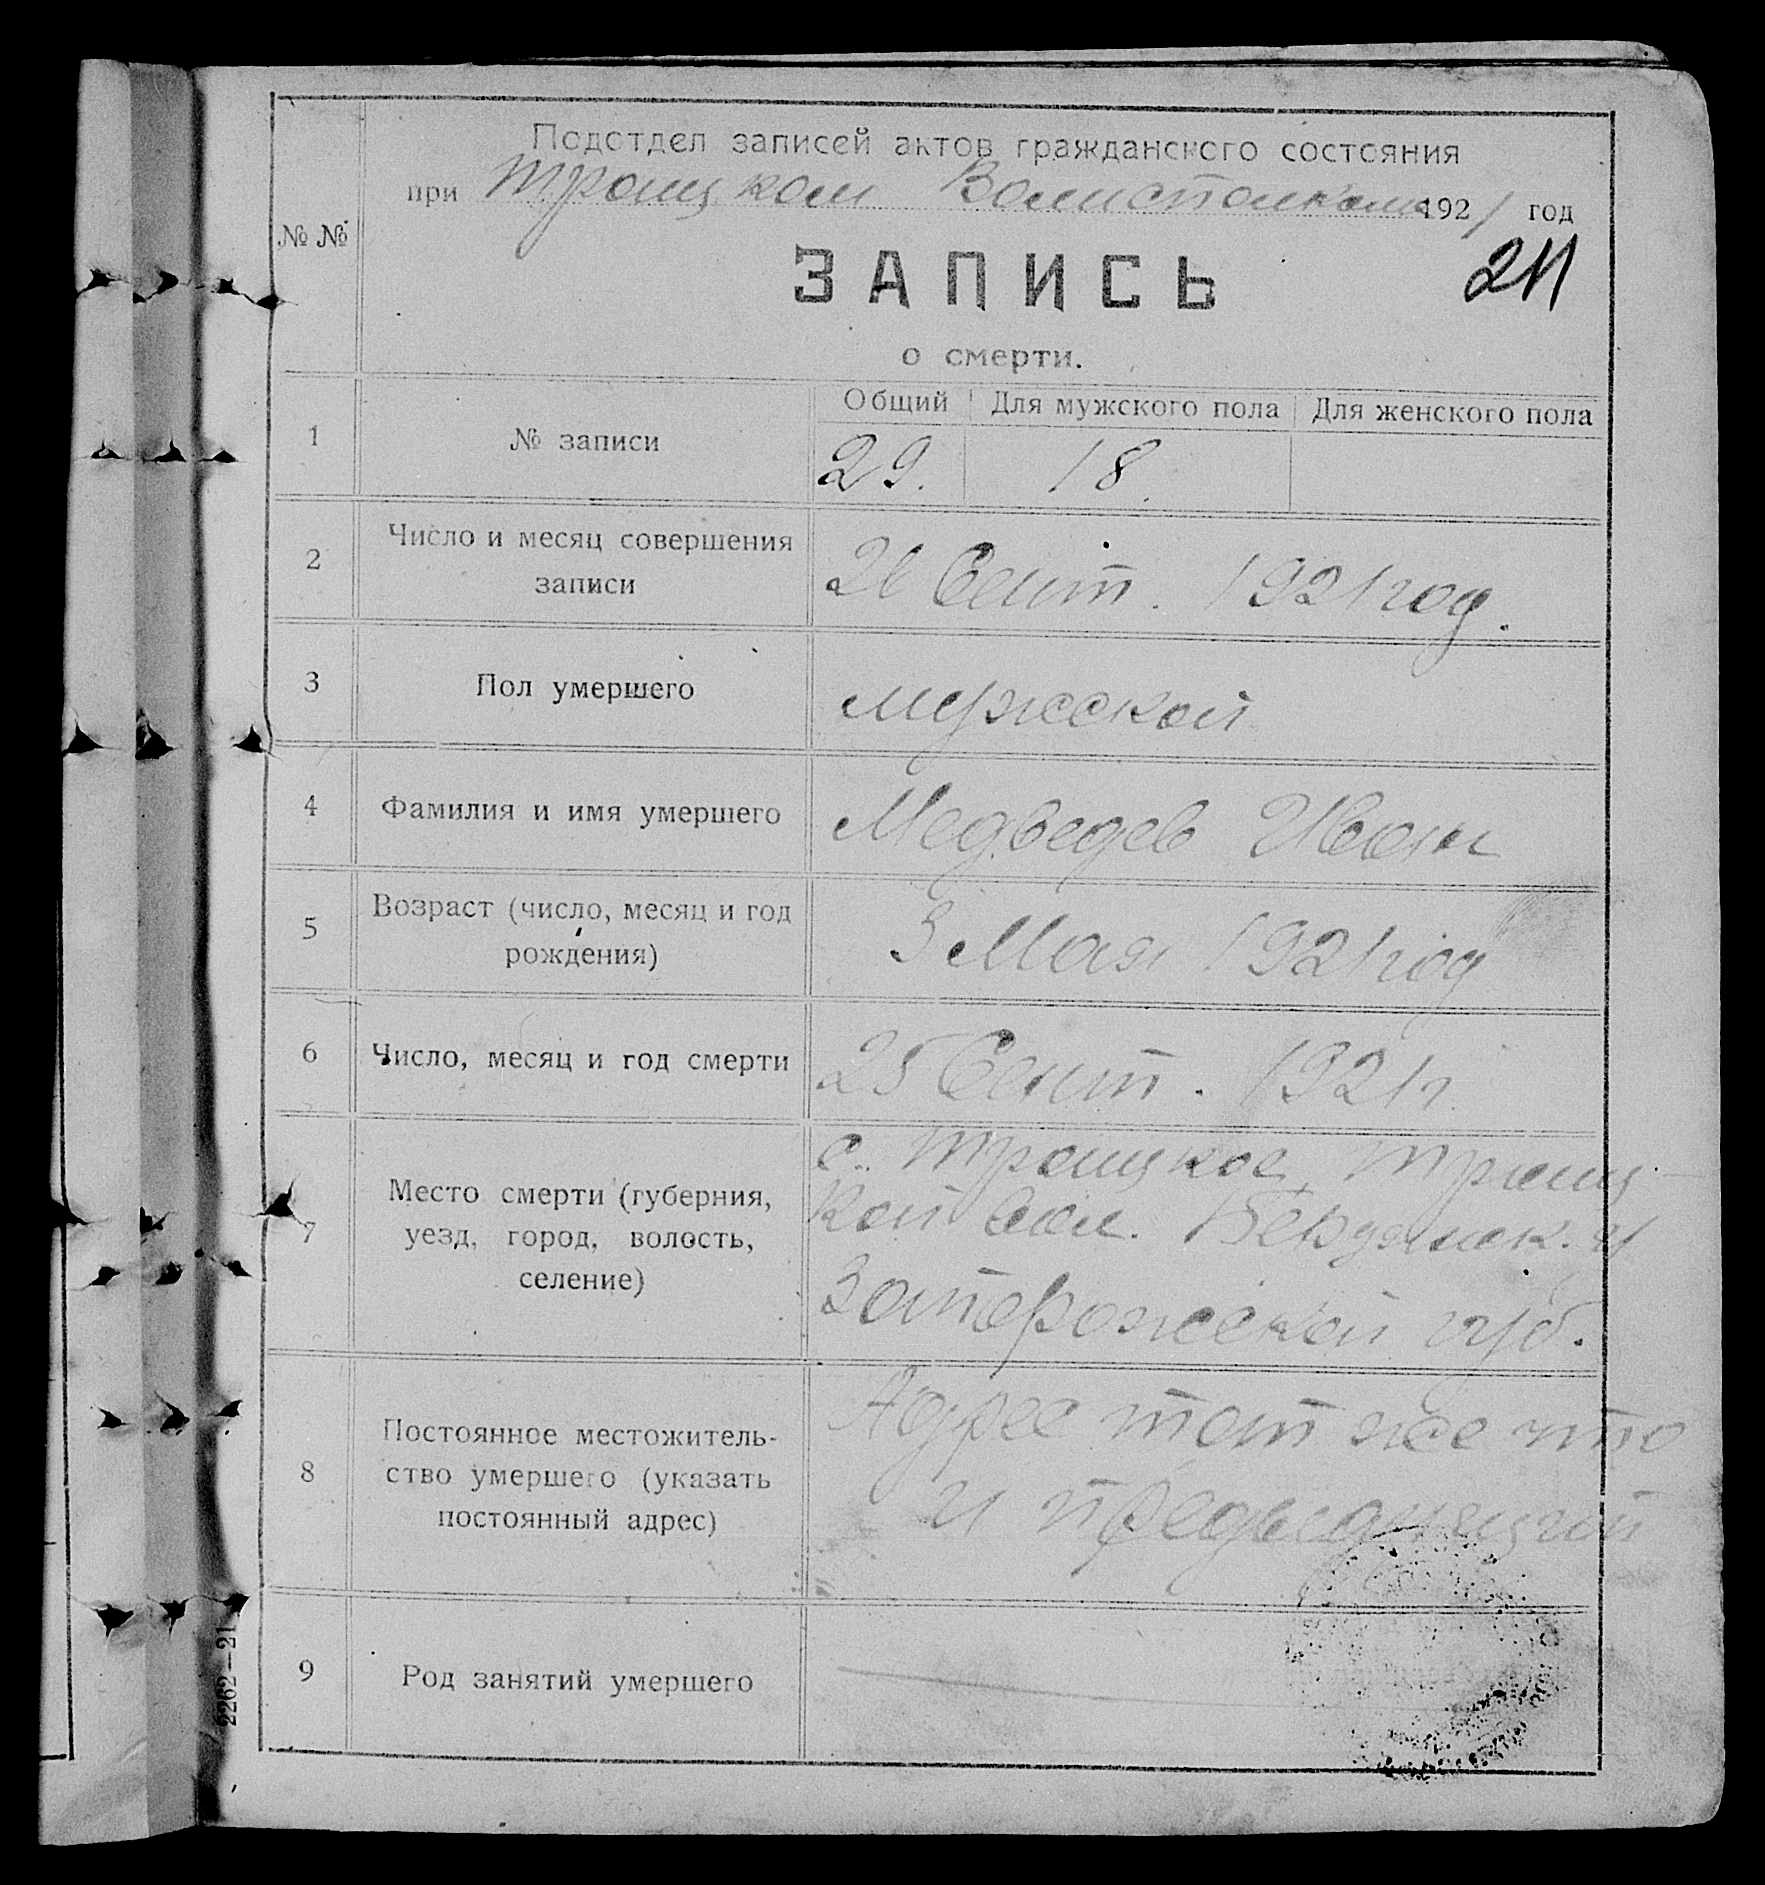 Подотдел записей актов гражданского состояния
при Троицком Волисполкоме 1921 год
№ №
ЗАПИСЬ
211
о смерти.
Общий Для мужского пола Для женского пола
1 № записи 29. 18.
2 Число и месяц совершения записи 26 Сент. 1921 год.
3 Пол умершего мужской
4 Фамилия и имя умершего Медведев Иван
5 Возраст (число, месяц и год рождения) 3 Мая 1921 год
6 Число, месяц и год смерти 25 Сент. 1921 г.
7 Место смерти (губерния, уезд, город, волость, селение)
с. Троицкое, Троиц-
кой вол. Бердянск. у
Запорожской губ.
8 Постоянное местожитель-
ство умершего (указать
постоянный адрес)
Адрес тот же что
и предыдущий
9 Род занятий умершего
2262—21